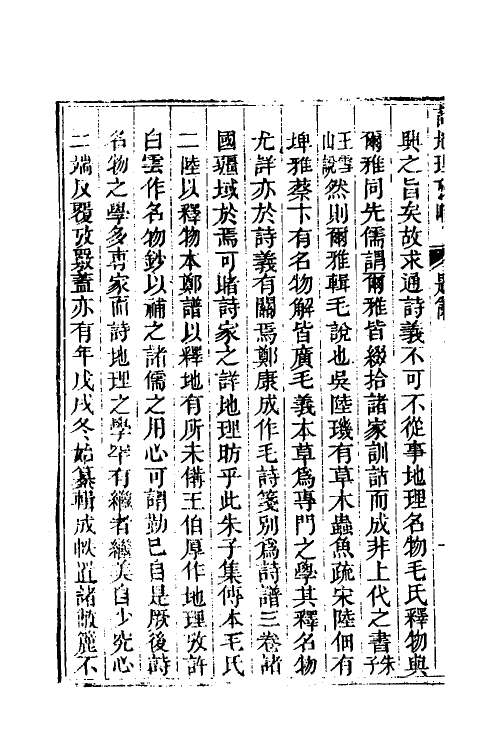 興之旨矣故求通詩義不可不從事地理名物毛氏釋物與
爾雅同先儒謂爾雅皆綴拾諸家訓詁而成非上代之書朱子
王雪山說然則爾雅輯毛說也吳陸璣有草木蟲魚疏宋陸佃有
埤雅蔡卞有名物解皆廣毛義本草為專門之學其釋名物
尤詳亦於詩義有關焉鄭康成作毛詩箋別為詩譜三卷諸
國疆域於焉可睹詩家之詳地理昉乎此朱子集傳本毛氏
二陸以釋物本鄭譜以釋地有所未備王伯厚作地理攷許
白雲作名物鈔以補之諸儒之用心可謂勤已自是厥後詩
名物之學多專家而詩地理之學罕有繼者繼美自少究心
二端反覆攷覈蓋亦有年戊戌冬始纂輯成帙置諸敝簏不